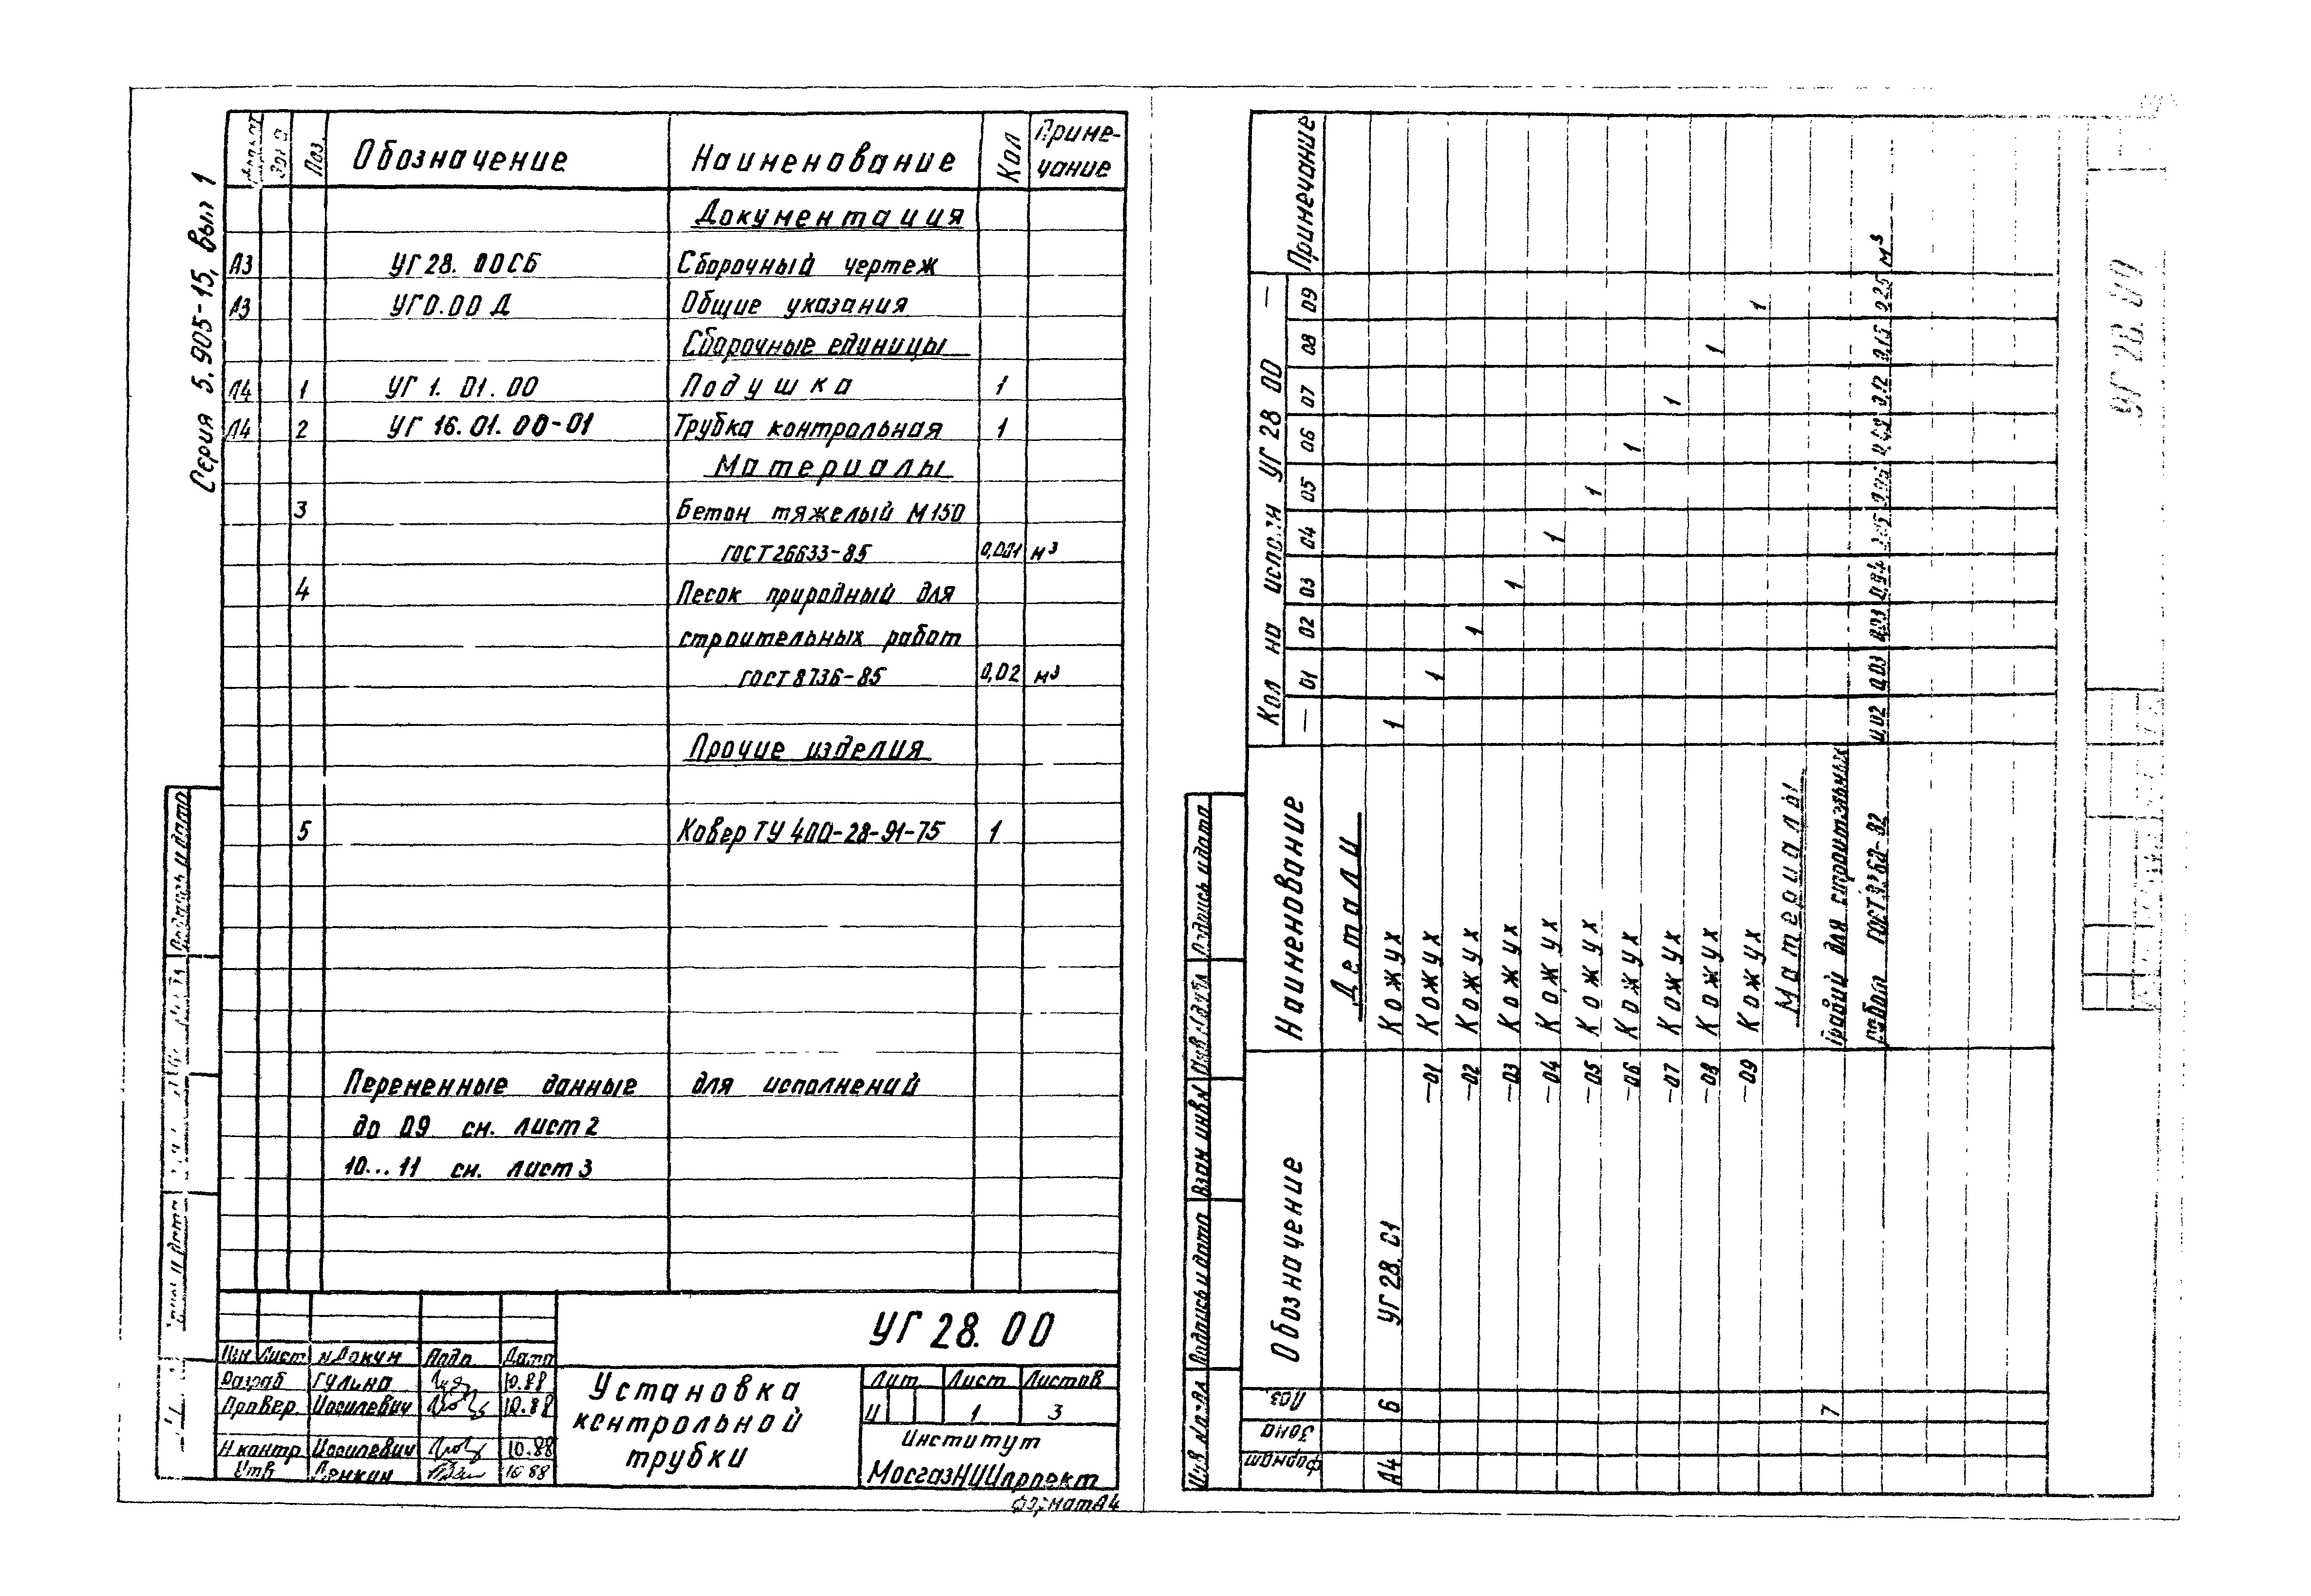 Серия 5.905-15, Вып 1
Поз. Обозначение Наименование Кол Приме-
чание
Документация
А3 УГ 28. 00СБ Сборочный чертеж
А3 УГ0.00 Д Общие указания
Сборочные единицы
А4 1 УГ 1. 01. 00 Подушка 1
А4 2 УГ 16. 01. 00-01 Трубка контрольная 1
Материалы
3 Бетон тяжелый М150
ГОСТ 26633-85 0,001 м³
4 Песок природный для
строительных работ
ГОСТ 8736-85 0,02 м³
Прочие изделия
5 Ковер ТУ 400-28-91-75 1
Переменные данные для исполнений
до 09 см. лист 2
10...11 см. лист 3
УГ 28. 00
Изм Лист № Докум Подп Дата
Разраб Гульна 10.88
Провер. Иосилевич 10.88
Н.контр Иосилевич 10.88
Утв 10 88
Установка
контрольной
трубки
Лит Лист Листов
И 1 3
Институт
МосгазНИИпроект
Формат А4
Формат Зона Поз Обозначение Наименование Кол на исполн УГ 28 00 — Примечание
— 01 02 03 04 05 06 07 08 09
Детали
А4 6 УГ 28. 01 Кожух 1
—01 Кожух 1
—02 Кожух 1
—03 Кожух 1
—04 Кожух 1
—05 Кожух 1
—06 Кожух 1
—07 Кожух 1
—08 Кожух 1
—09 Кожух 1
Материалы
7 Гравий для строительных
работ ГОСТ 8268-82 0,02 0,03 0,04 0,12 м³
Инв № подл Подпись и дата Взам инв № Инв № дубл Подпись и дата
УГ 28. 00